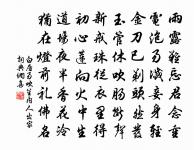 雨露難忘君念重
電泡易滅妾身輕
金刀已剃頭然髮
玉管休吹腸斷聲
新戒珠從衣裏得
初心蓮向火中生
道場夜半香花冷
獨在燈前禮佛名
白居易吹笙內人出家
典網